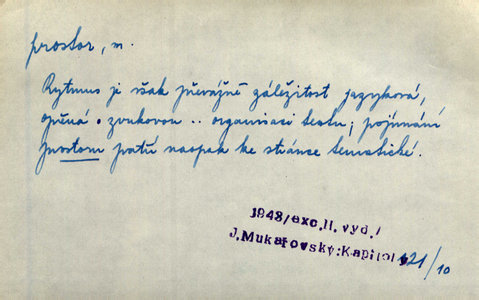 prostor, m.
Rytmus je však převážně záležitost jazyková,
opřená o zvukovou .. organisaci textu; pojímání
prostoru patří naopak ke stránce tematické.
1948/exc.II.vyd./
J.Mukařovský:Kapitoly
121/10